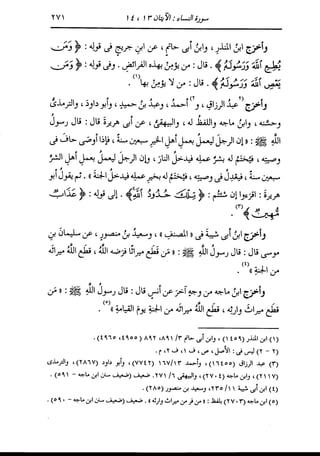 سورة النساء : الآيتان ١٣ ، ١٤ ٢٧١
وأخرج ابنُ المنذرِ ، وابنُ أبى حاتمٍ ، عن ابنِ جريجٍ فى قولِه : ﴿ وَمَن
يُطِعِ ٱللَّهَ وَرَسُولَهُ ﴾ . قال : مَن يؤمنْ بهذه الفرائضِ . وفى قولِه : ﴿ وَمَن
يَعْصِ ٱللَّهَ وَرَسُولَهُ ﴾ . قال : مَن لا يؤمنْ بها (١) .
وأخرج (٢) عبدُ الرزاقِ ، و (٢) أحمدُ ، وعبدُ بنُ حميدٍ ، وأبو داودَ ، والترمذىُّ
وحسَّنه ، وابنُ ماجه واللفظُ له ، والبيهقىُّ ، عن أبى هريرةَ قال : قال رسولُ
اللهِ ﷺ : « إن الرجلَ ليعملُ بعملِ أهلِ الخيرِ سبعين سنةً ، فإذا أوصَى حاف فى
وصيتِه ، فيُختمُ له بشرِّ عملِه فيدخلُ النارَ ، وإن الرجلَ ليعملُ بعملِ أهلِ الشرِّ
سبعين سنةً ، فيعدِلُ فى وصيتِه ، فيُختمُ له بخيرِ عملِه فيدخلُ الجنةَ » . ثم يقولُ أبو
هريرةَ : اقرءوا إن شئتم : ﴿ تِلْكَ حُدُودُ ٱللَّهِ ﴾ . إلى قولِه : ﴿ عَذَابٌ
مُّهِينٌ ﴾ (٣) .
وأخرج ابنُ أبى شيبةَ فى « المصنفِ » ، وسعيدُ بنُ منصورٍ ، عن سليمانَ بنِ
موسى قال : قال رسولُ اللهِ ﷺ : « مَن قطَع ميراثًا فرَضه اللهُ ، قطَع اللهُ ميراثَه
من الجنةِ » (٤) .
وأخرج ابنُ ماجه من وجهٍ آخرَ عن أنسٍ قال : قال رسولُ اللهِ ﷺ : « مَن
قطَع ميراثَ وارثِه ، قطَع اللهُ ميراثَه من الجنةِ يومَ القيامةِ » (٥) .
(١) ابن المنذر (١٤٥٩) ، وابن أبى حاتم ٨٩١/٣ ، ٨٩٢ (٤٩٥٥ ، ٤٩٦٥) .
(٢ - ٢) ليس فى : الأصل ، ص ، ف ١ ، ف ٢ ، م .
(٣) عبد الرزاق (١٦٤٥٥) ، وأحمد ١٦٧/١٣ (٧٧٤٢) ، وأبو داود (٢٨٦٧) ، والترمذى
(٢١١٧) ، وابن ماجه (٢٧٠٤) ، والبيهقى ٢٧١/٦ . ضعيف (ضعيف سنن ابن ماجه - ٥٩١) .
(٤) ابن أبى شيبة ٢٣٥/١١ ، وسعيد بن منصور (٢٨٥) .
(٥) ابن ماجه (٢٧٠٣) بلفظ : « من فر من ميراث وارثه » . ضعيف (ضعيف سنن ابن ماجه - ٥٩٠) .